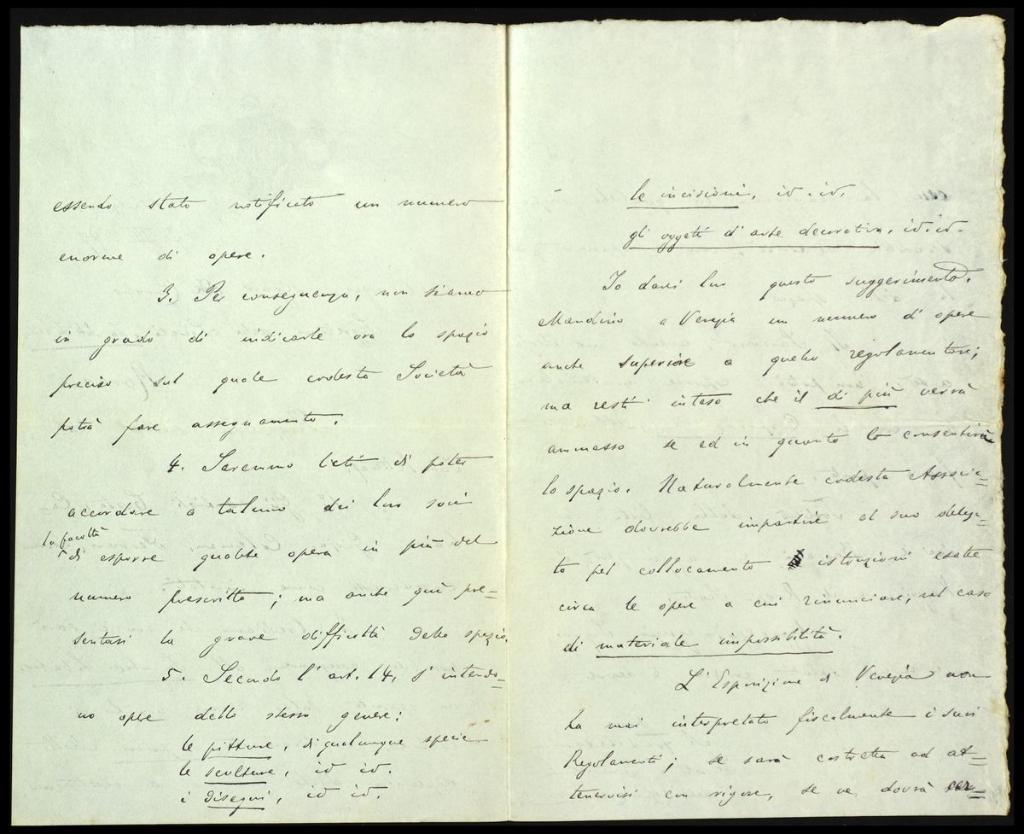 essendo stato notificato un numero
enorme di opere.
3. Per conseguenza, non siamo
in grado di indicarle ora lo spazio
preciso sul quale codesta Società
potrà fare assegnamento.
4. Saremmo lieti di poter
accordare a taluno dei loro soci
la facoltà
di esporre qualche opera in più del
numero prescritto; ma anche qui pre=
sentasi la grave difficoltà dello spazio.
5. Secondo l'art. 14, s'intendo=
no opere dello stesso genere:
le pitture, di qualunque specie
le sculture, id id.
i disegni, id id.
le incisioni, id. id.
gli oggetti d'arte decorativa, id. id.
Io darei loro questo suggerimento.
Mandino a Venezia un numero d'opere
anche superiore a quello regolamentare;
ma resti inteso che il di più verrà
ammesso se ed in quanto lo consentirà
lo spazio. Naturalmente codesta Associa=
zione dovrebbe impartire al suo delega=
to pel collocamento istruzioni esatte
circa le opere a cui rinunciare, nel caso
di materiale impossibilità.
L'Esposizione di Venezia non
ha mai interpretato fiscalmente i suoi
Regolamenti; se sarà costretta ad at=
tenervisi con rigore, se ne dovrà